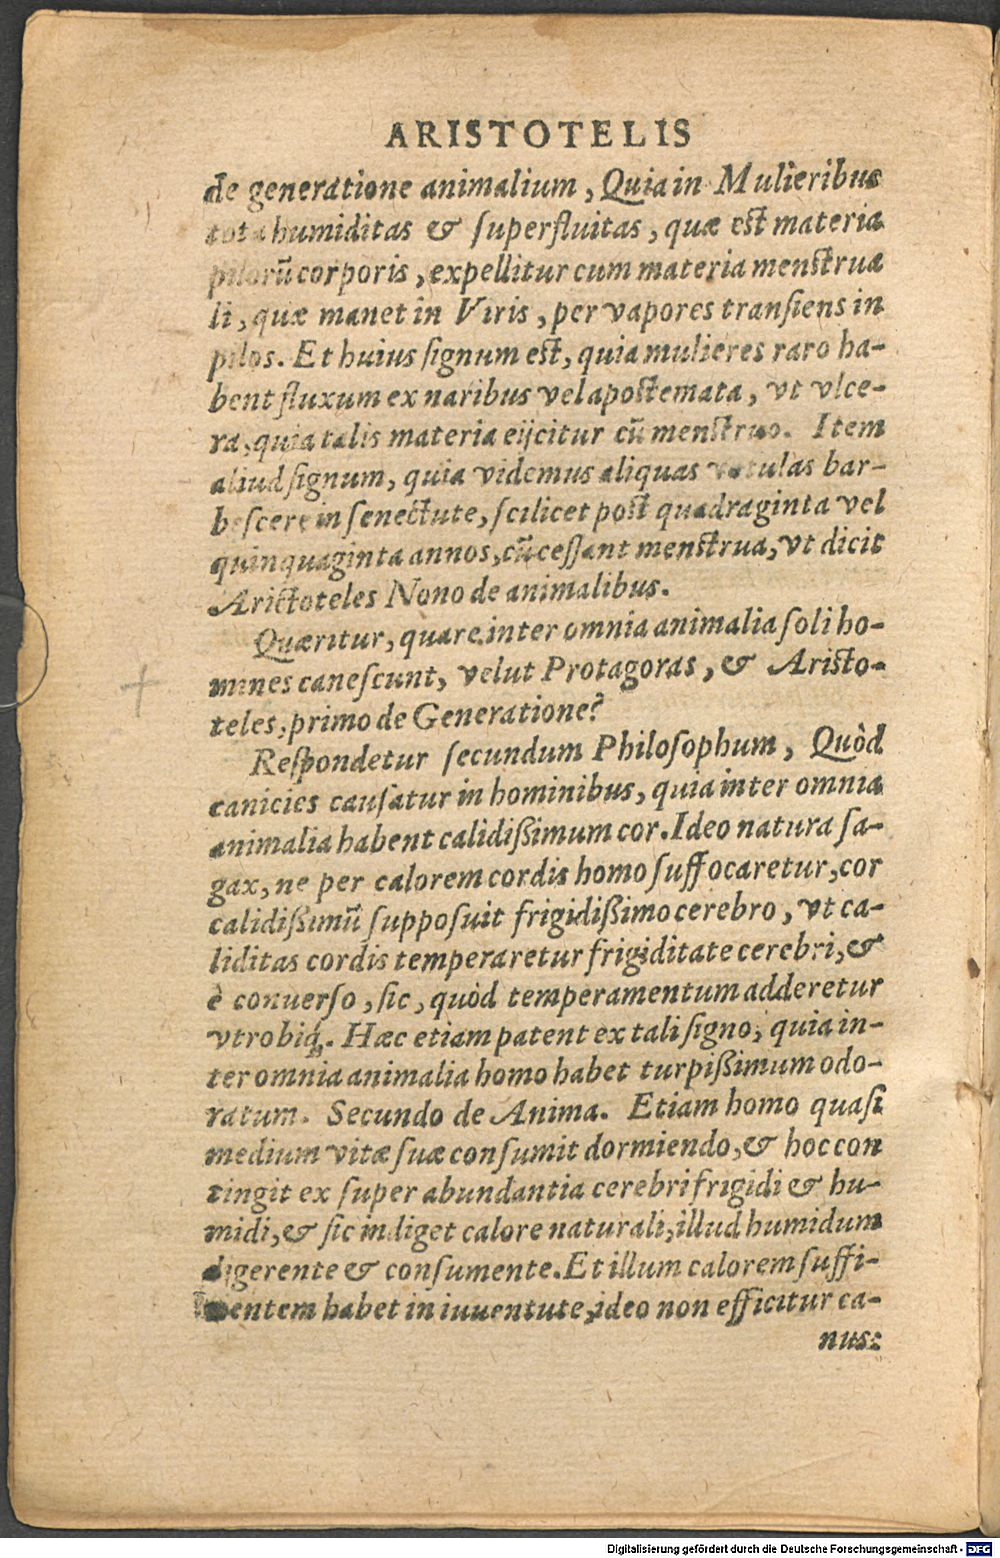 ARISTOTELIS
de generatione animalium, Quia in Mulieribus
tota humiditas & ſuperfluitas, quæ eſt materia
pilorũ corporis, expellitur cum materia menſtrua
li, quæ manet in Viris, per vapores tranſiens in
pilos. Et huius ſignum eſt, quia mulieres raro ha-
bent fluxum ex naribus vel apoſtemata, vt vlce-
ra, quia talis materia eijcitur cũ menſtruo. Item
aliud ſignum, quia videmus aliquas vetulas bar-
beſcere in ſenectute, ſcilicet poſt quadraginta vel
quinquaginta annos, cũ ceſſant menſtrua, vt dicit
Ariſtoteles Nono de animalibus.
Quæritur, quare inter omnia animalia ſoli ho-
mines caneſcunt, velut Protagoras, & Ariſto-
teles, primo de Generatione?
Reſpondetur ſecundum Philoſophum, Quòd
canicies cauſatur in hominibus, quia inter omnia
animalia habent calidißimum cor. Ideo natura ſa-
gax, ne per calorem cordis homo ſuffocaretur, cor
calidißimũ ſuppoſuit frigidißimo cerebro, vt ca-
liditas cordis temperaretur frigiditate cerebri, &
è conuerſo, ſic, quòd temperamentum adderetur
vtrobiq́;. Hæc etiam patent ex tali ſigno, quia in-
ter omnia animalia homo habet turpißimum odo-
ratum. Secundo de Anima. Etiam homo quaſi
medium vitæ ſuæ conſumit dormiendo, & hoc con
tingit ex ſuper abundantia cerebri frigidi & hu-
midi, & ſic indiget calore naturali, illud humidum
digerente & conſumente. Et illum calorem ſuffi-
entem habet in iuuentute, ideo non efficitur ca-
nus:
Digitalisierung gefördert durch die Deutsche Forschungsgemeinschaft - DFG